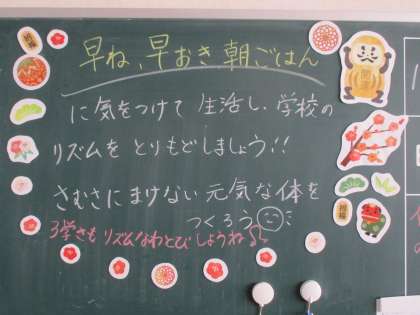 早ね、早おき朝ごはん
に気をつけて 生活し、学校の
リズムを とりもどしましょう!!
さむさに まけない 元気な体を
つくろう
3学きも リズムなわとび しようね